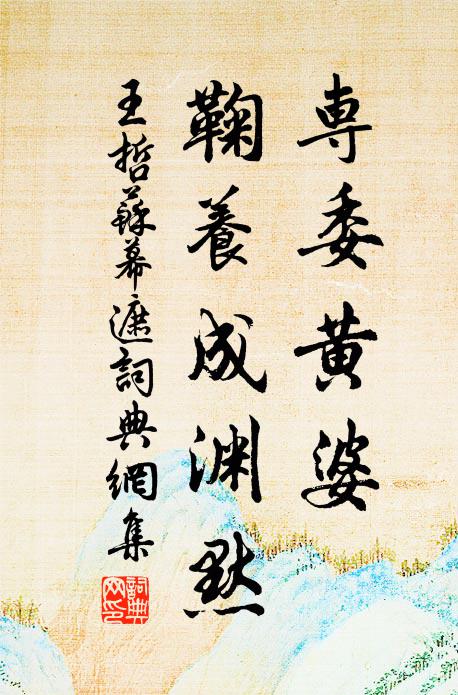 専委黄婆
鞠養成淵黙
王哲蘇幕遮詞典網集
詞典網印